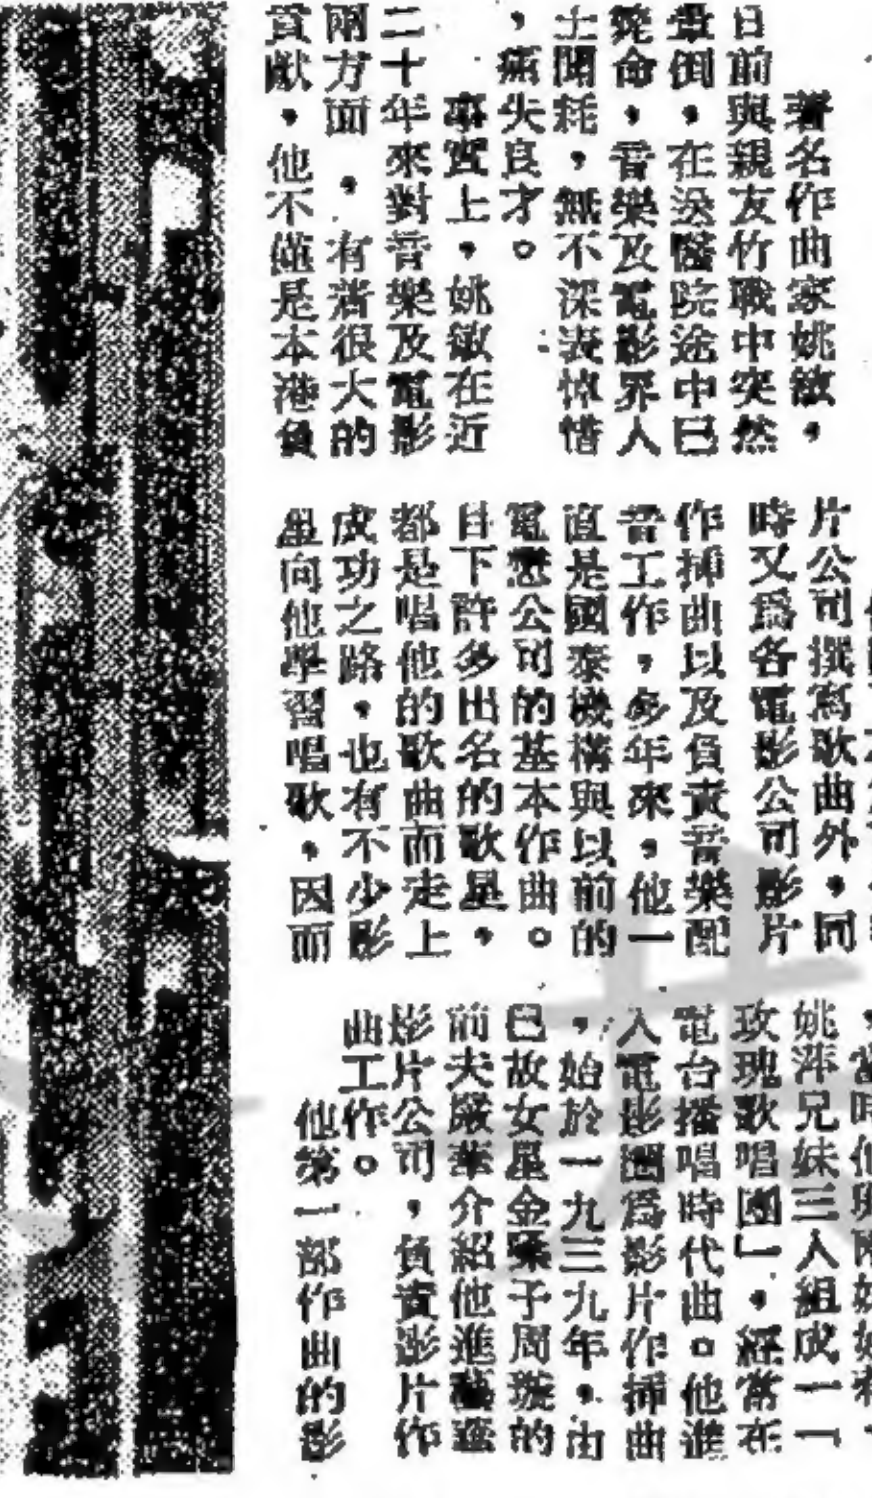 著名作曲家姚敏，
日前與親友竹戰中突然
暈倒，在送醫院途中已
斃命，音樂及電影界人
士聞耗，無不深表悼惜
，痛失良才。
事實上，姚敏在近
二十年來對音樂及電影
兩方面，有着很大的
貢獻，他不僅是本港負
片公司撰寫歌曲外，同
時又爲各電影公司影片
作揷曲以及負責音樂配
音工作，多年來，他一
直是國泰機構與以前的
電懋公司的基本作曲。
目下許多出名的歌星，
都是唱他的歌曲而走上
成功之路，也有不少影
星向他學習唱歌，因而
，當時他與
姚莉兄妹三人組成一「
玫瑰歌唱團」，經常在
電台播唱時代曲。他進
入電影圈爲影片作揷曲
，始於一九三九年，由
已故女星金嗓子周璇的
前夫嚴華介紹他進藝華
影片公司，負責影片作
曲工作。
他第一部作曲的影